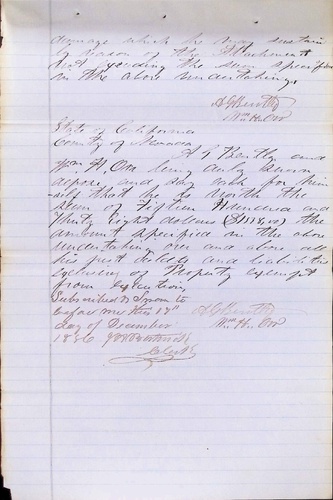 damage which he may sustain
by reason of the Attachment
not exceeding the sum specified
in the above undertaking.
A G Bently
Wm. H. Orr
State of California
County of
A G Bently and
Wm. H. Orr being duly sworn
depose and say each for him
self that he is worth the
sum of Fifteen Hundred and
Thirty Eight dollars the
amount specified in the above
undertaking over and above all
his just debts and liabilities
exclusive of Property exempt
from execution
Subscribed & Sworn to
before me this 12th
day of December
A G Bently
Wm. H. Orr
Clerk